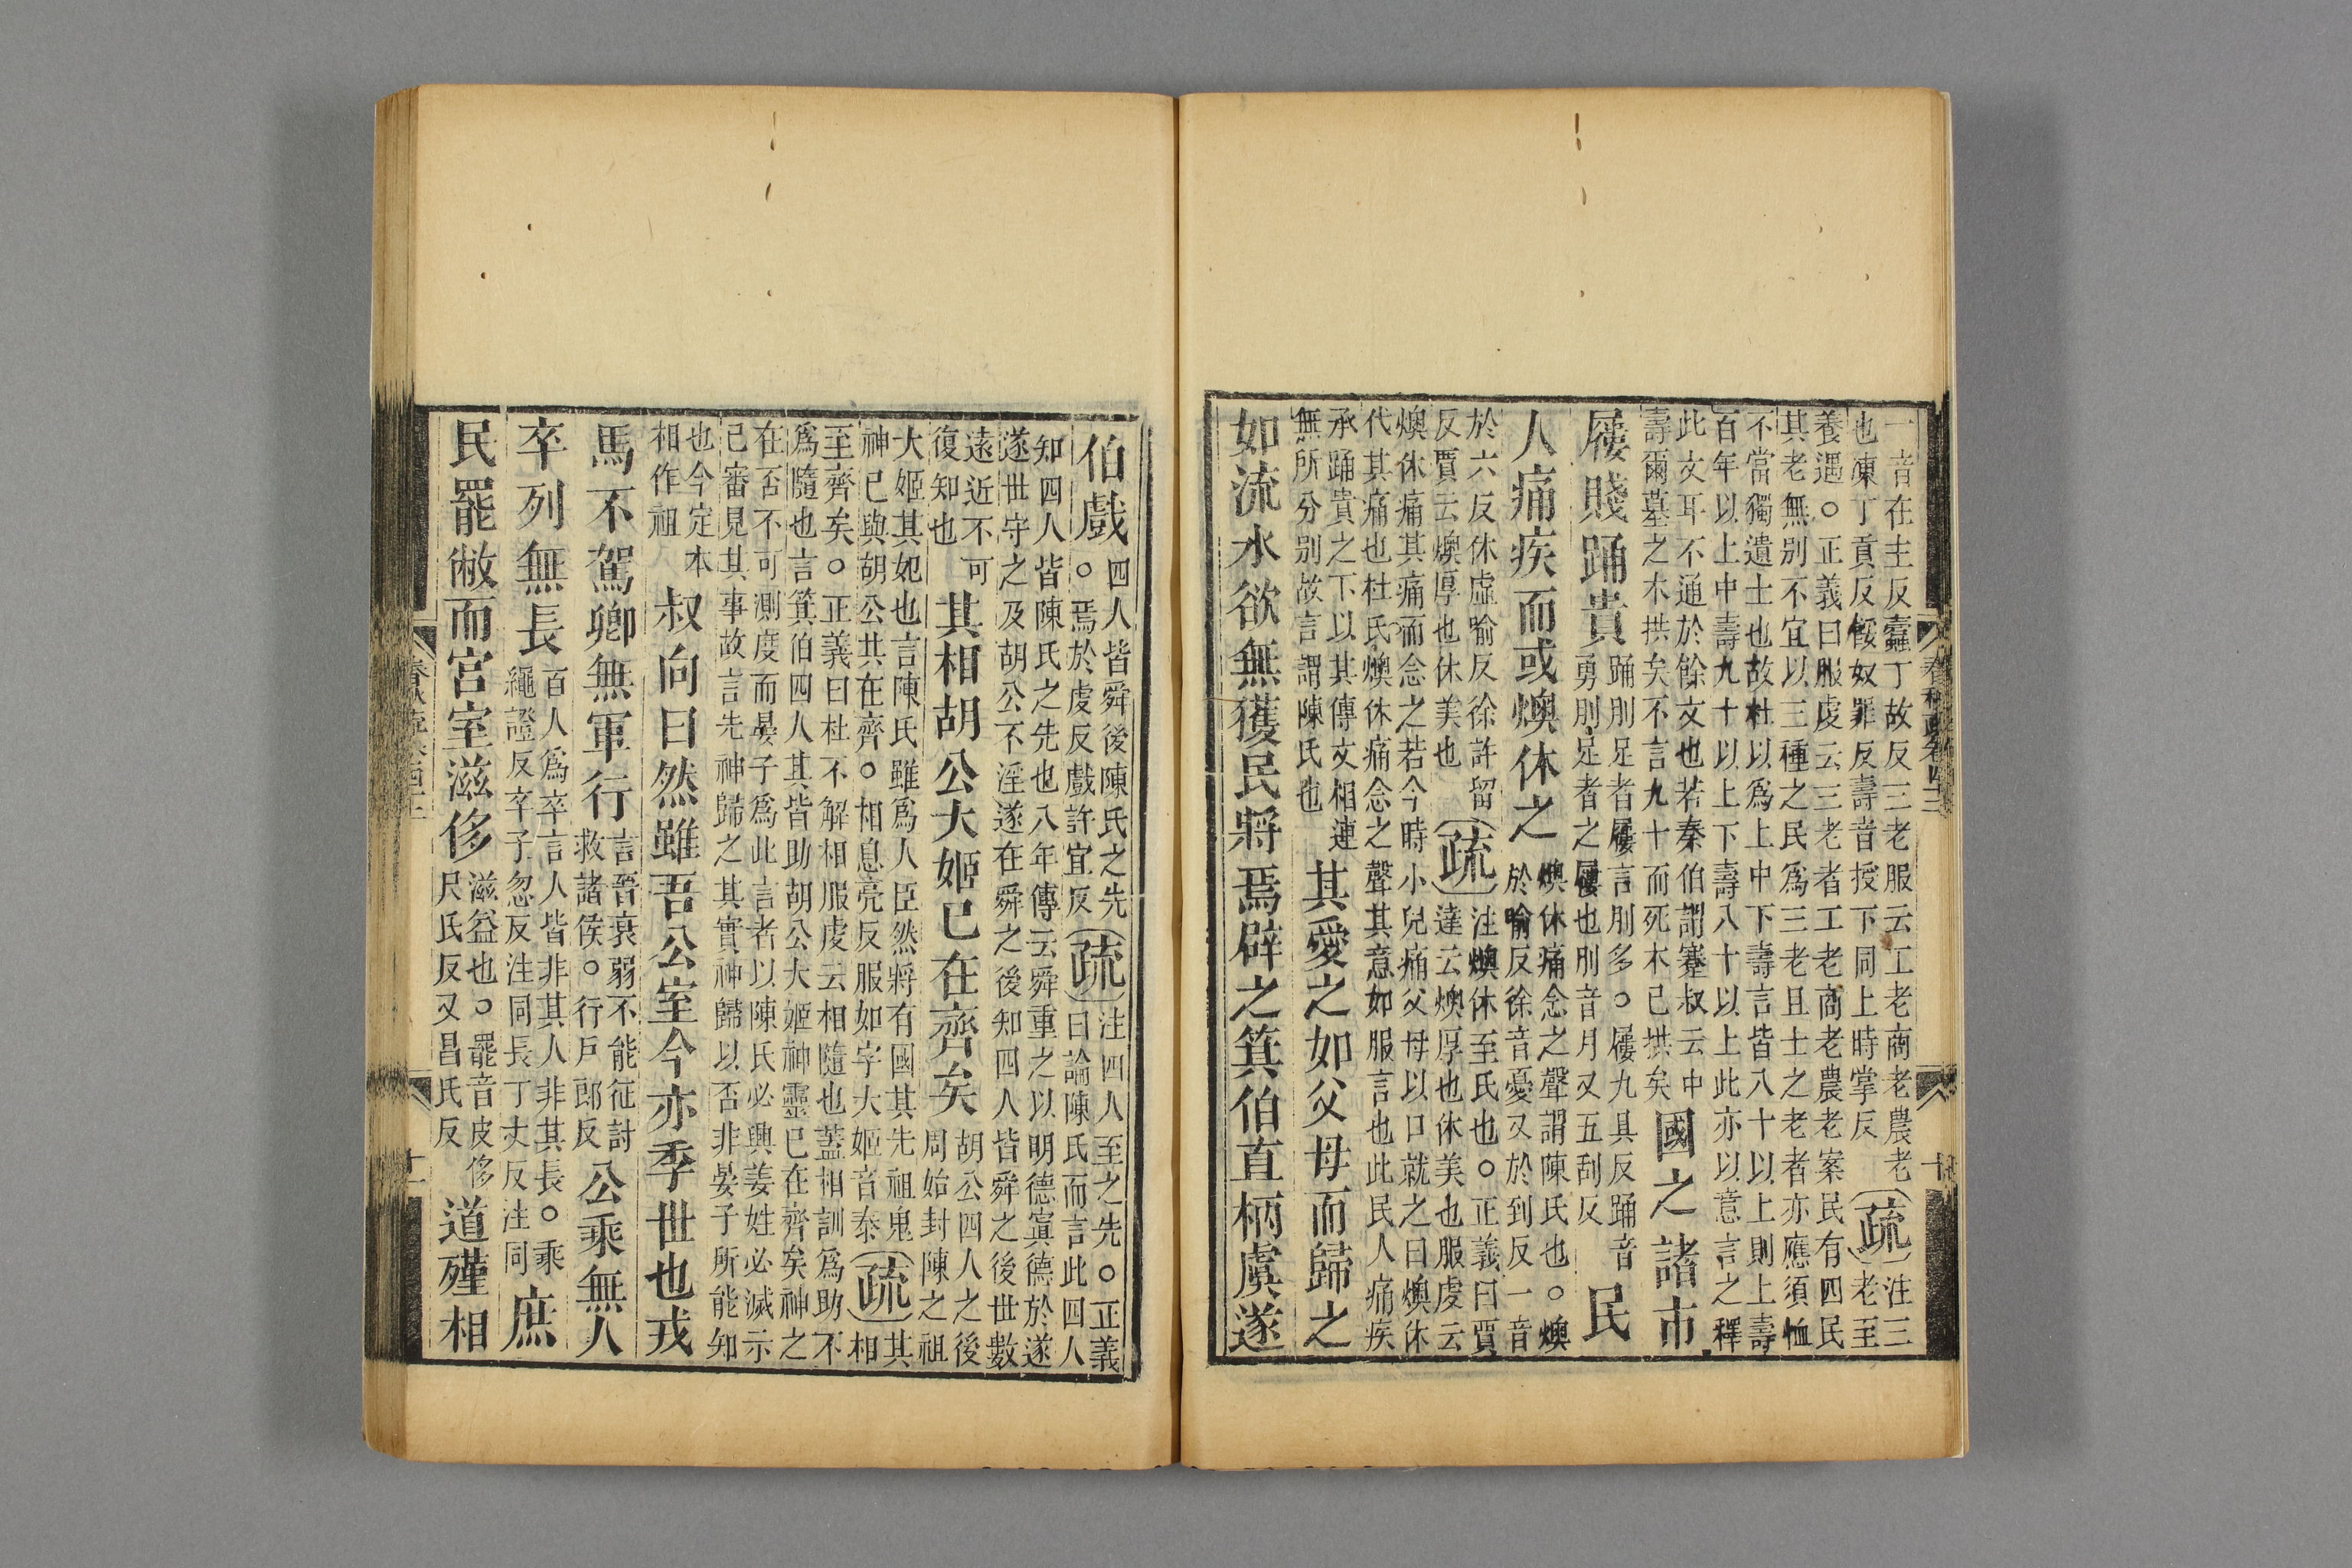 一音在主反蠧丁故反三老服云工老商老農老
也凍丁貢反餒奴罪反壽音授下同上時掌反疏注三老至
養遇○正義曰服虔云三老者工老商老農老案民有四民
其老無別不宜以三種之民爲三老且士之老者亦應須恤
不當獨遺士也故杜以爲上中下壽言皆八十以上則上壽
百年以上中壽九十以上下壽八十以上此亦以意言之釋
此文耳不通於餘文也若秦伯謂蹇叔云中
壽爾墓之木拱矣不言九十而死木已拱矣
國之諸市
屨賤踊貴
踊刖足者屨言刖多○屨九具反踊音
勇刖足者之屨也刖音月又五刮反
民
人痛疾而或燠休之
燠休痛念之聲謂陳氏也○燠
於喻反徐音憂又於到反一音
於六反休虛喻反徐許留
反賈云燠厚也休美也
疏
注燠休至氏也○正義曰賈
達云燠厚也休美也服虔云
燠休痛其痛而念之若今時小兒痛父母以口就之曰燠休
代其痛也杜氏燠休痛念之聲其意如服言也此民人痛疾
承踊貴之下以其傳文相連
無所分別故言謂陳氏也
其愛之如父母而歸之
如流水欲無獲民將焉辟之箕伯直柄虞遂
春秋疏卷四十二
十
伯戲
四人皆舜後陳氏之先
○焉於虔反戲許宜反
疏
注四人至之先○正義
曰論陳氏而言此四人
知四人皆陳氏之先也八年傳云舜重之以明德寘德於遂
遂世守之及胡公不淫遂在舜之後知四人皆舜之後世數
遠近不可
復知也
其相胡公大姬已在齊矣
胡公四人之後
周始封陳之祖
大姬其妃也言陳氏雖爲人臣然將有國其先祖鬼
神已與胡公共在齊○相息亮反服如字大姬音泰
疏
其
相
至齊矣○正義曰杜不解相服虔云相隨也蓋相訓爲助不
爲隨也言箕伯四人其皆助胡公大姬神靈已在齊矣神之
在否不可測度而晏子爲此言者以陳氏必興姜姓必滅示
已審見其事故言先神歸之其實神歸以否非晏子所能知
也今定本
相作祖
叔向曰然雖吾公室今亦季世也戎
馬不駕卿無軍行
言晉衰弱不能征討
救諸侯○行戶郎反
公乘無人
卒列無長
百人爲卒言人皆非其人非其長○乘
繩證反卒子忽反注同長丁丈反注同
庶
民罷敝而宮室滋侈
滋益也○罷音皮侈
尺氏反又昌氏反
道殣相
十一